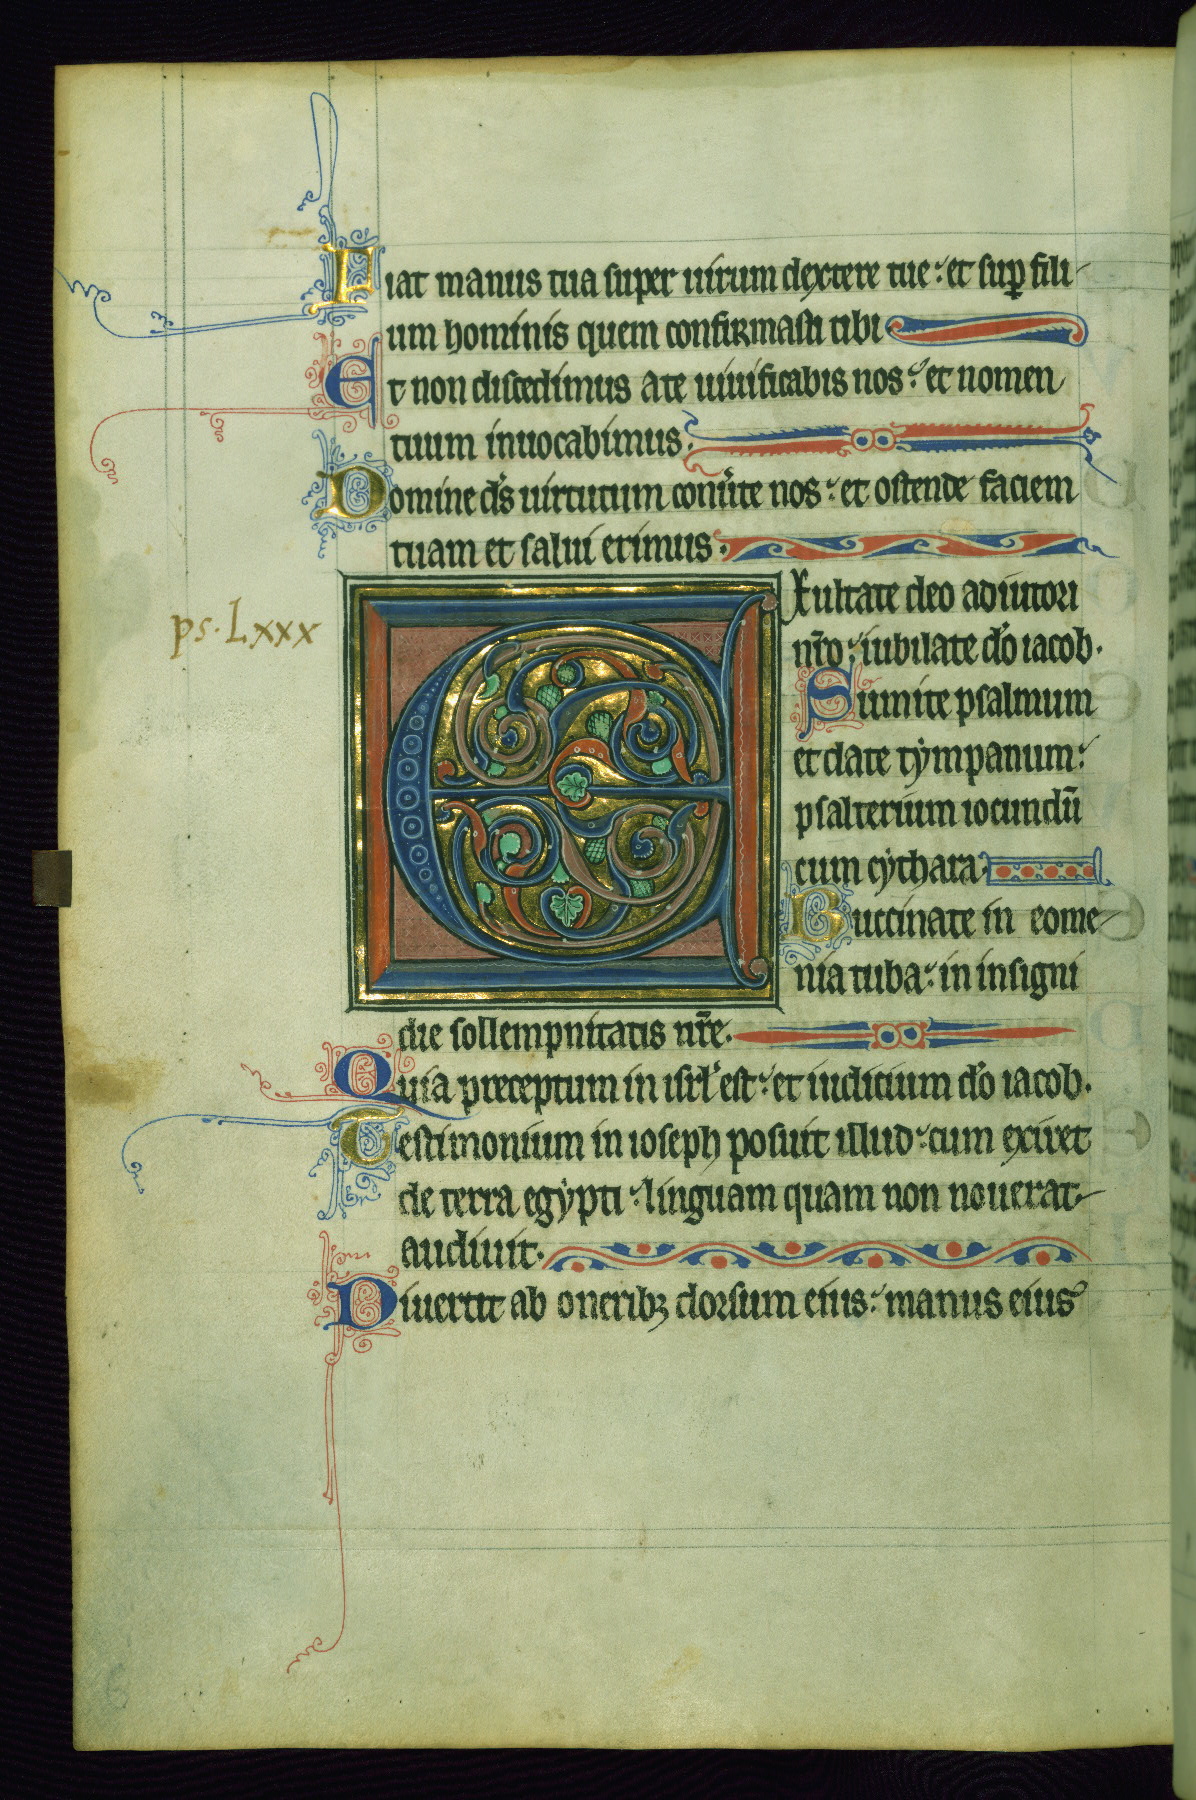 Fiat manus tua super uirum dextere tue: et sup̱ fili
um hominis quem confirmasti tibi
Et non discedimus ate uiuificabis nos: et nomen
tuum inuocabimus.
Domine ds̄ uirtutum conu̓te nos: et ostende faciem
tuam et salui erimus.
ps. Lxxx
Exultate deo adiutori
nr̄o: iubilate do̓ iacob.
Sumite psalmum
et date tẏmpanum:
psalterium iocundū
cum cẏthara.
Buccinate in eome
nia tuba: in insigni
die sollempnitatis nr̄e.
Quia preceptum in isrl̓ est: et iudicium do̓ iacob.
Testimonium in ioseph posuit illud: cum exiret
de terra egẏpti: linguam quam non nouerat
audiuit.
Diuertit ab oneribꝫ dorsum eius: manus eius